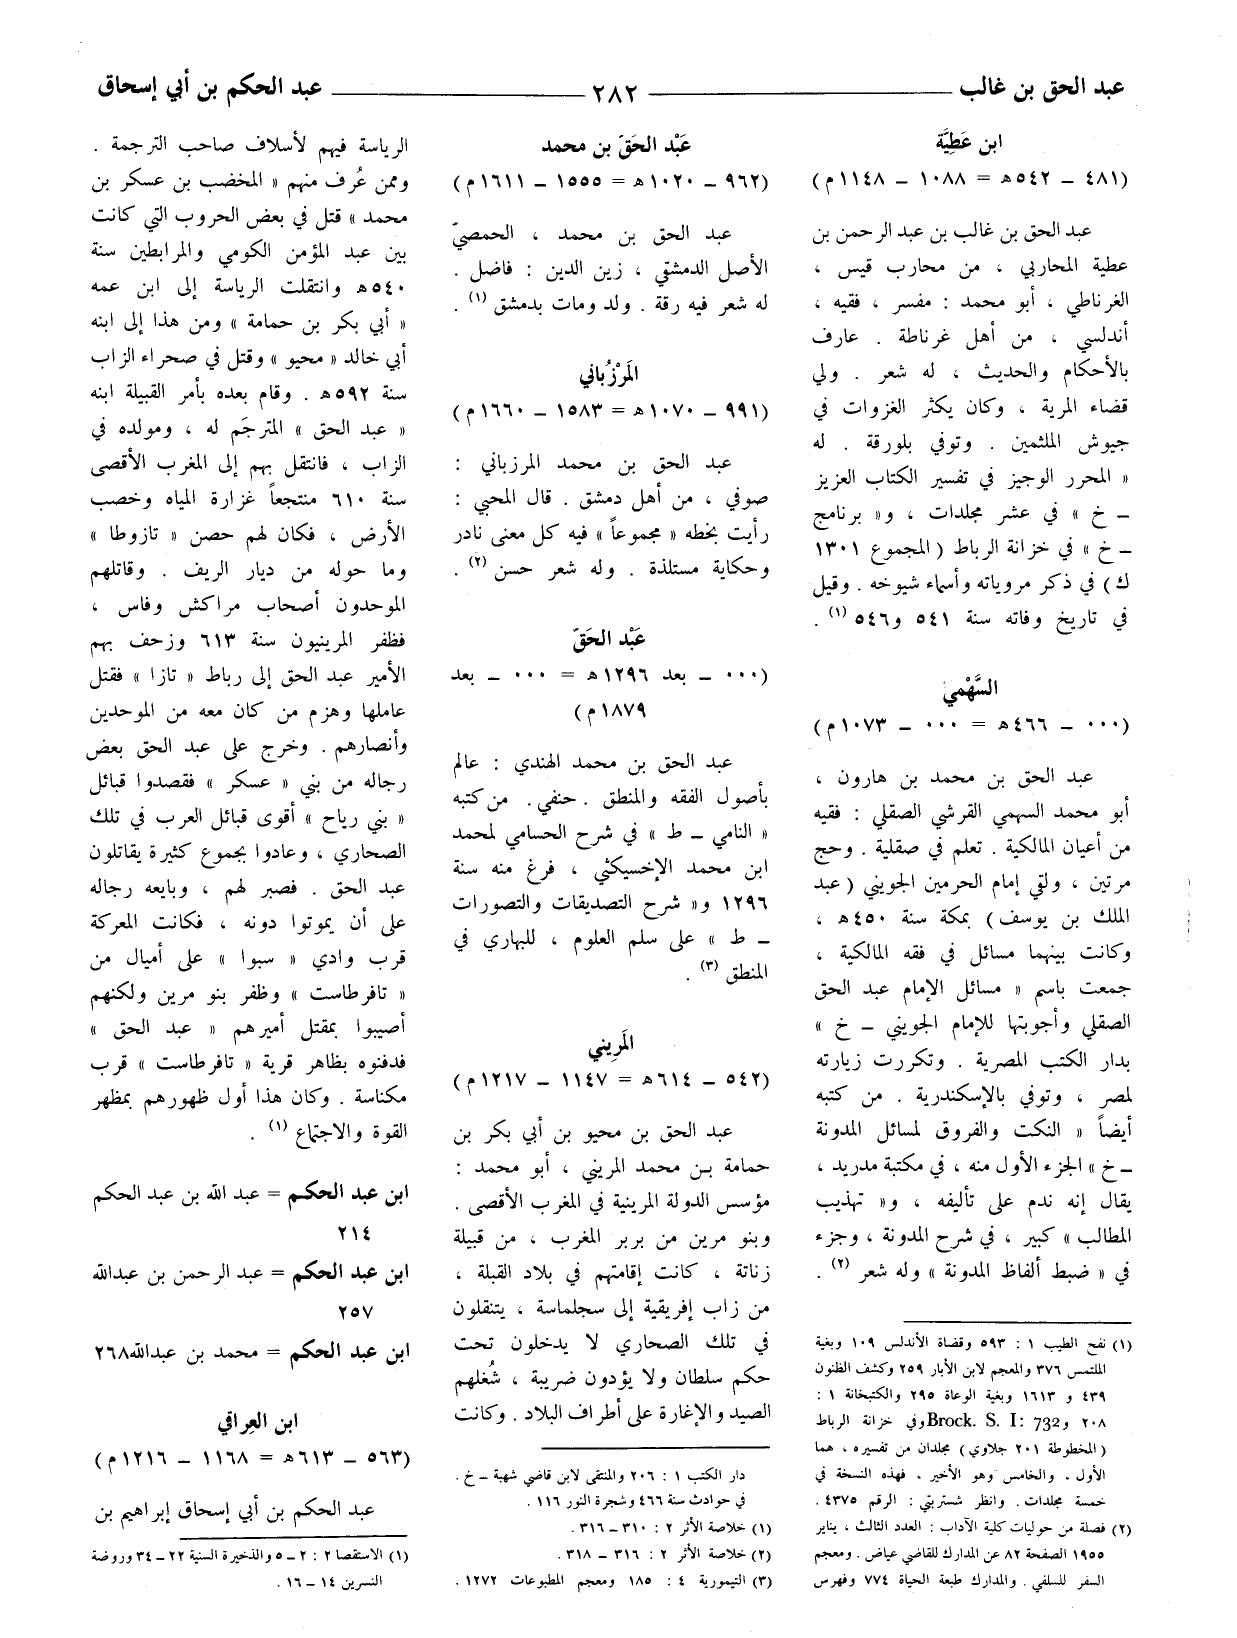 عبد الحق بن غالب ٢٨٢ عبد الحكم بن أبي إسحاق
ابن عَطِيَّة
(٤٨١ – ٥٤٢ه = ١٠٨٨ – ١١٤٨م)
عبد الحق بن غالب بن عبد الرحمن بن
عطية المحاربي ، من محارب قيس ،
الغرناطي ، أبو محمد : مفسر ، فقيه ،
أندلسي ، من أهل غرناطة . عارف
بالأحكام والحديث ، له شعر . ولي
قضاء المرية ، وكان يكثر الغزوات في
جيوش الملثمين . وتوفي بلورقة . له
« المحرر الوجيز في تفسير الكتاب العزيز
– خ » في عشر مجلدات ، و« برنامج
– خ » في خزانة الرباط ( المجموع ١٣٠١
ك ) في ذكر مروياته وأسماء شيوخه . وقيل
في تاريخ وفاته سنة ٥٤١ و٥٤٦ (١) .
السَّهْمي
(٠٠٠ – ٤٦٦ه = ٠٠٠ – ١٠٧٣م)
عبد الحق بن محمد بن هارون ،
أبو محمد السهمي القرشي الصقلي : فقيه
من أعيان المالكية . تعلم في صقلية . وحج
مرتين ، ولقي إمام الحرمين الجويني ( عبد
الملك بن يوسف ) بمكة سنة ٤٥٠ه ،
وكانت بينهما مسائل في فقه المالكية ،
جمعت باسم « مسائل الإمام عبد الحق
الصقلي وأجوبتها للإمام الجويني – خ »
بدار الكتب المصرية . وتكررت زيارته
لمصر ، وتوفي بالإسكندرية . من كتبه
أيضاً « النكت والفروق لمسائل المدونة
– خ » الجزء الأول منه ، في مكتبة مدريد ،
يقال إنه ندم على تأليفه ، و« تهذيب
المطالب » كبير ، في شرح المدونة ، وجزء
في « ضبط ألفاظ المدونة » وله شعر (٢) .
(١) نفح الطيب ١ : ٥٩٣ وقضاة الأندلس ١٠٩ وبغية
الملتمس ٣٧٦ والمعجم لابن الأبار ٢٥٩ وكشف الظنون
٤٣٩ و ١٦١٣ وبغية الوعاة ٢٩٥ والكتبخانة ١ :
٢٠٨ وBrock. S. I: 732 وفي خزانة الرباط
( المخطوطة ٢٠١ جلاوي ) مجلدان من تفسيره ، هما
الأول ، والخامس وهو الأخير ، فهذه النسخة في
خمسة مجلدات . وانظر شستربتي : الرقم ٤٣٧٥ .
(٢) فصلة من حوليات كلية الآداب : العدد الثالث ، يناير
١٩٥٥ الصفحة ٨٢ عن المدارك للقاضي عياض . ومعجم
السفر للسلفي . والمدارك طبعة الحياة ٧٧٤ وفهرس
عَبْد الحَقّ بن محمد
(٩٦٢ – ١٠٢٠ه = ١٥٥٥ – ١٦١١م)
عبد الحق بن محمد ، الحمصيّ
الأصل الدمشقي ، زين الدين : فاضل .
له شعر فيه رقة . ولد ومات بدمشق (١) .
المَرْزُباني
(٩٩١ – ١٠٧٠ه = ١٥٨٣ – ١٦٦٠م)
عبد الحق بن محمد المرزباني :
صوفي ، من أهل دمشق . قال المحبي :
رأيت بخطه « مجموعاً » فيه كل معنى نادر
وحكاية مستلذة . وله شعر حسن (٢) .
عَبْد الحَقّ
(٠٠٠ – بعد ١٢٩٦ه = ٠٠٠ – بعد
١٨٧٩م)
عبد الحق بن محمد الهندي : عالم
بأصول الفقه والمنطق . حنفي . من كتبه
« النامي – ط » في شرح الحسامي لمحمد
ابن محمد الإخسيكثي ، فرغ منه سنة
١٢٩٦ و« شرح التصديقات والتصورات
– ط » على سلم العلوم ، للبهاري في
المنطق (٣) .
المَرِيني
(٥٤٢ – ٦١٤ه = ١١٤٧ – ١٢١٧م)
عبد الحق بن محيو بن أبي بكر بن
حمامة بن محمد المريني ، أبو محمد :
مؤسس الدولة المرينية في المغرب الأقصى .
وبنو مرين من بربر المغرب ، من قبيلة
زناتة ، كانت إقامتهم في بلاد القبلة ،
من زاب إفريقية إلى سجلماسة ، يتنقلون
في تلك الصحاري لا يدخلون تحت
حكم سلطان ولا يؤدون ضريبة ، شُغلهم
الصيد والإغارة على أطراف البلاد . وكانت
دار الكتب ١ : ٢٠٦ والمنتقى لابن قاضي شهبة – خ .
في حوادث سنة ٤٦٦ وشجرة النور ١١٦ .
(١) خلاصة الأثر ٢ : ٣١٠ – ٣١٦ .
(٢) خلاصة الأثر ٢ : ٣١٦ – ٣١٨ .
(٣) التيمورية ٤ : ١٨٥ ومعجم المطبوعات ١٢٧٢ .
الرياسة فيهم لأسلاف صاحب الترجمة .
وممن عُرف منهم « المخضب بن عسكر بن
محمد » قتل في بعض الحروب التي كانت
بين عبد المؤمن الكومي والمرابطين سنة
٥٤٠ه وانتقلت الرياسة إلى ابن عمه
« أبي بكر بن حمامة » ومن هذا إلى ابنه
أبي خالد « محيو » وقتل في صحراء الزاب
سنة ٥٩٢ه . وقام بعده بأمر القبيلة ابنه
« عبد الحق » المترجَم له ، ومولده في
الزاب ، فانتقل بهم إلى المغرب الأقصى
سنة ٦١٠ منتجعاً غزارة المياه وخصب
الأرض ، فكان لهم حصن « تازوطا »
وما حوله من ديار الريف . وقاتلهم
الموحدون أصحاب مراكش وفاس ،
فظفر المرينيون سنة ٦١٣ وزحف بهم
الأمير عبد الحق إلى رباط « تازا » فقتل
عاملها وهزم من كان معه من الموحدين
وأنصارهم . وخرج على عبد الحق بعض
رجاله من بني « عسكر » فقصدوا قبائل
« بني رياح » أقوى قبائل العرب في تلك
الصحاري ، وعادوا بجموع كثيرة يقاتلون
عبد الحق . فصبر لهم ، وبايعه رجاله
على أن يموتوا دونه ، فكانت المعركة
قرب وادي « سبوا » على أميال من
« تافرطاست » وظفر بنو مرين ولكنهم
أصيبوا بمقتل أميرهم « عبد الحق »
فدفنوه بظاهر قرية « تافرطاست » قرب
مكناسة . وكان هذا أول ظهورهم بمظهر
القوة والاجتماع (١) .
ابن عبد الحكم = عبد الله بن عبد الحكم
٢١٤
ابن عبد الحكم = عبد الرحمن بن عبدالله
٢٥٧
ابن عبد الحكم = محمد بن عبدالله ٢٦٨
ابن العِراقي
(٥٦٣ – ٦١٣ه = ١١٦٨ – ١٢١٦م)
عبد الحكم بن أبي إسحاق إبراهيم بن
(١) الاستقصا ٢ : ٢ – ٥ والذخيرة السنية ٢٢ – ٣٤ وروضة
النسرين ١٤ – ١٦ .